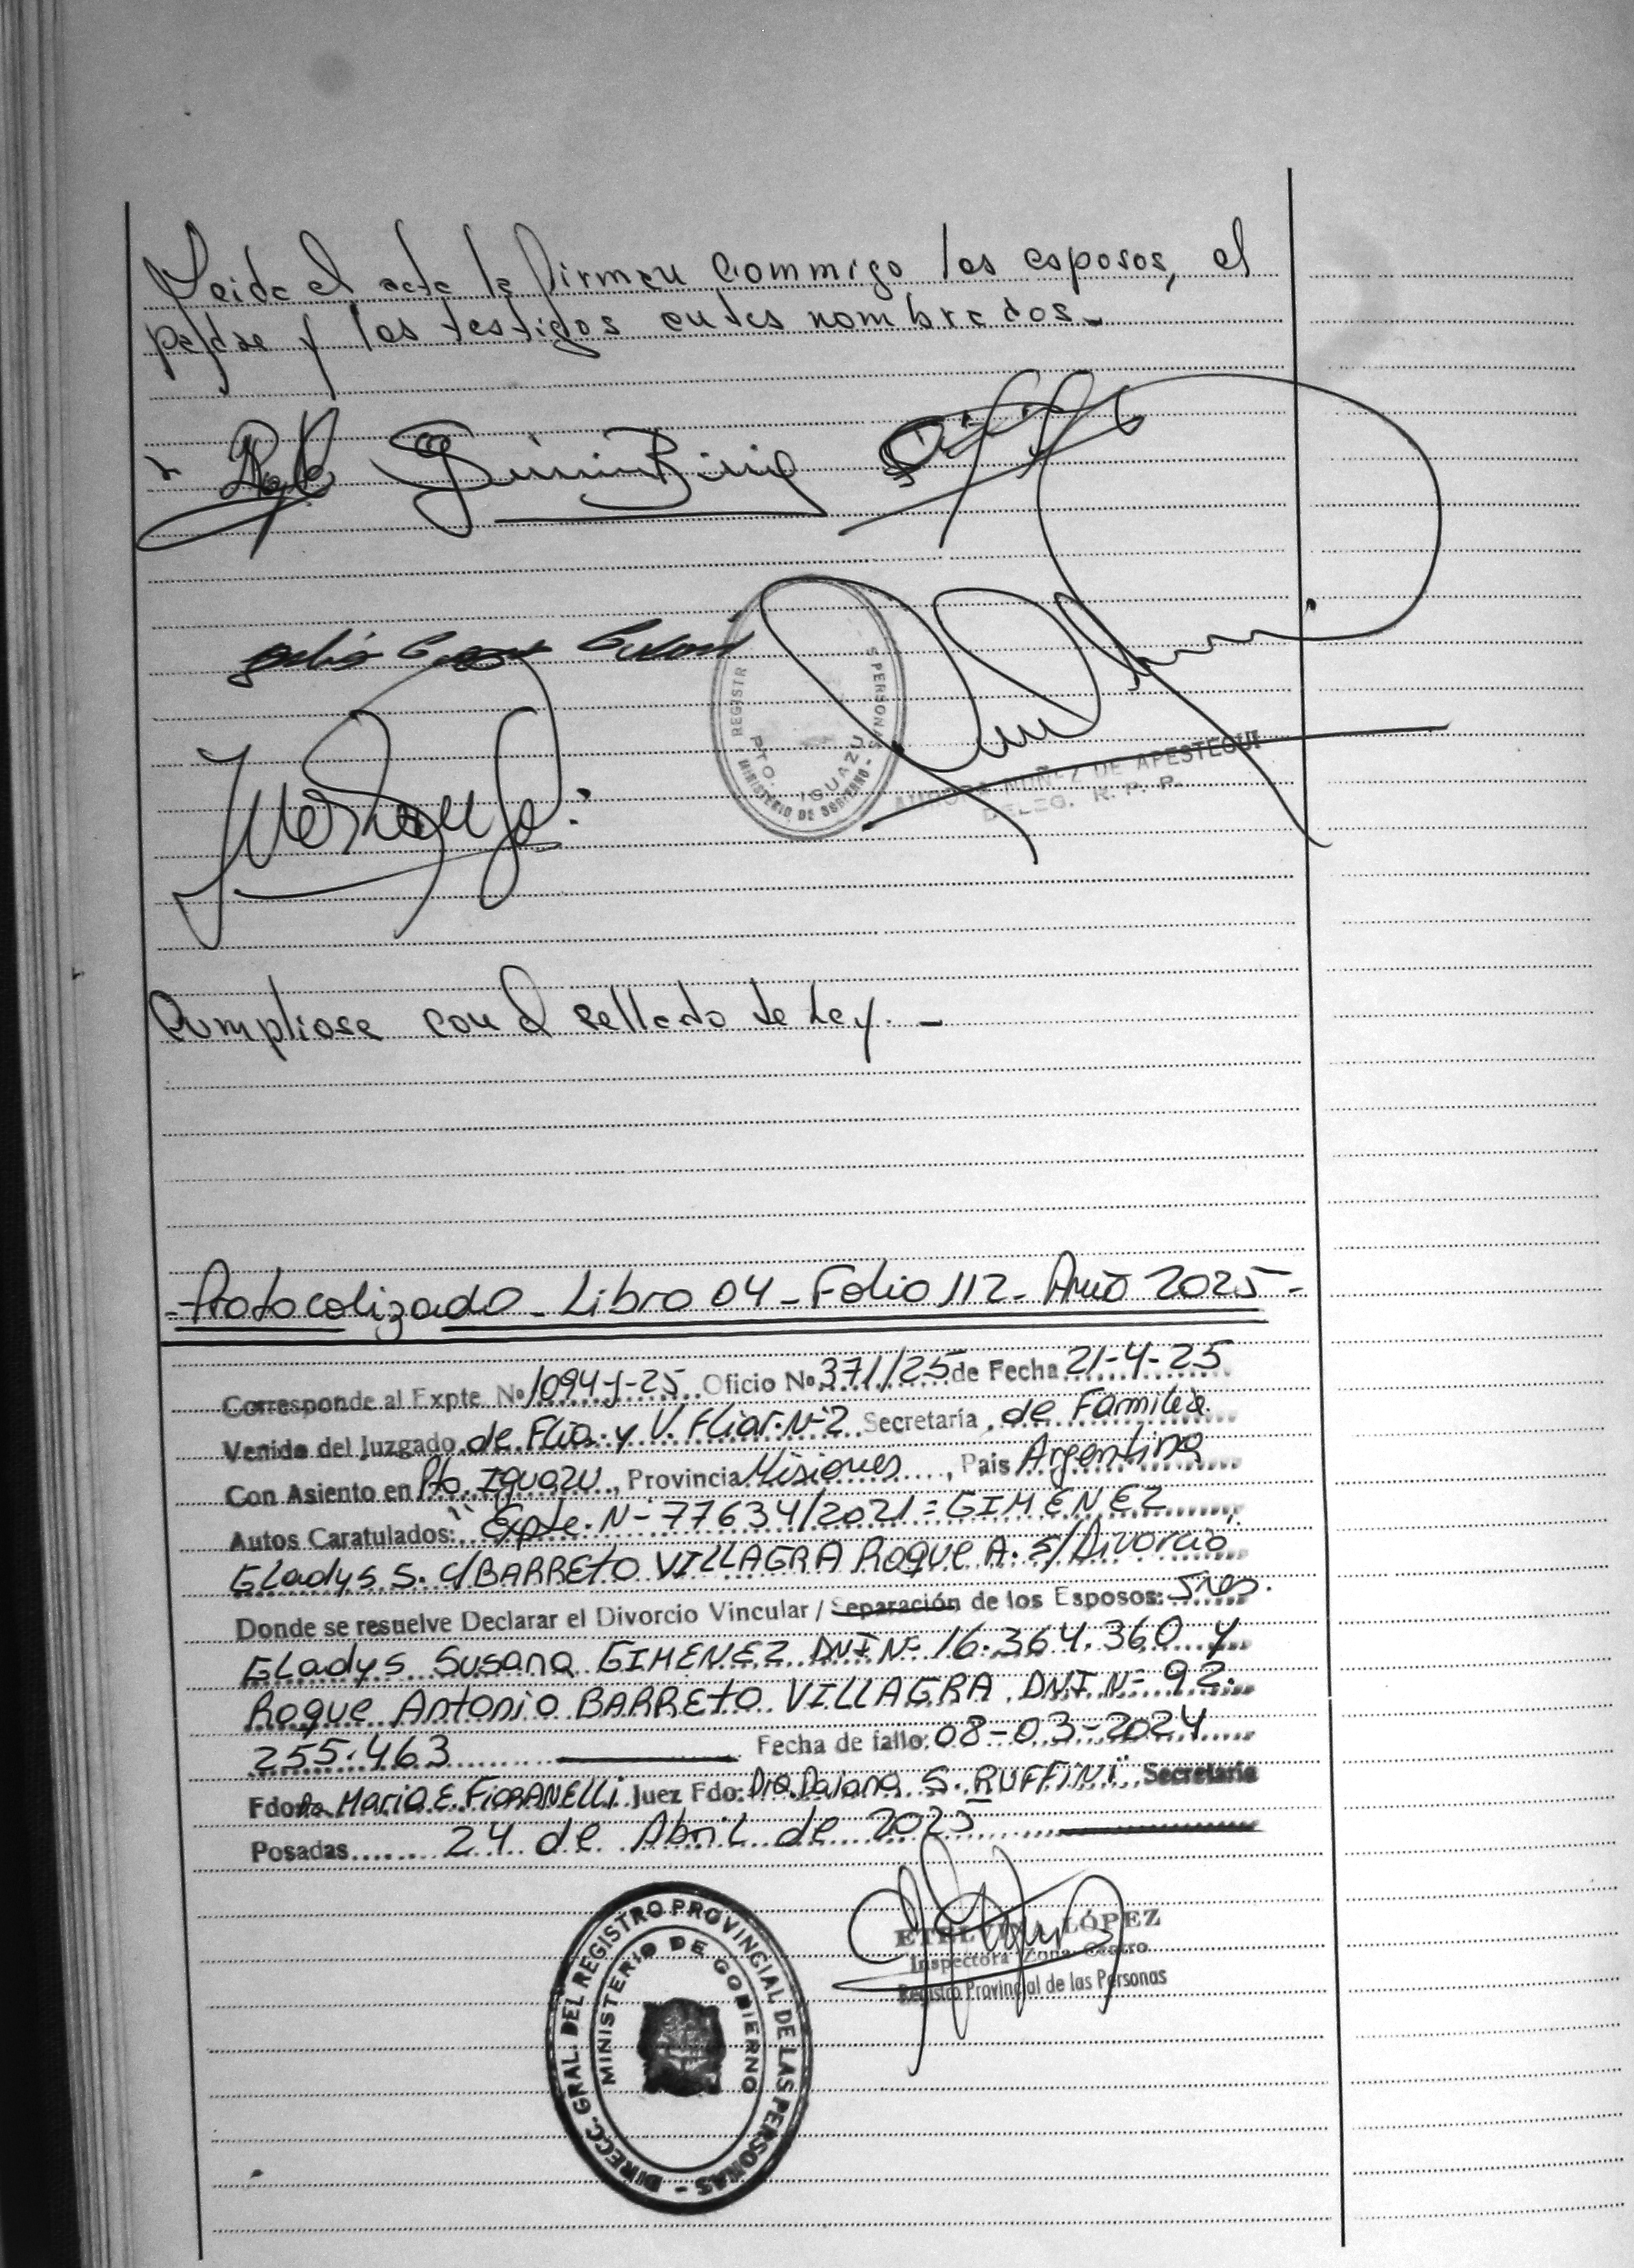 Leida el acta la firman commigo los esposos, el
padre y los testigos antes nombrados.-
REGISTR S PERSONAS
PTO. IGUAZU
MINISTERIO DE GOBIERNO -
AURORA NUÑEZ DE APESTEGUI
DELEG. R. P. P.
Cumpliose con el sellado de Ley. -
-Protocolizado - Libro 04 - Folio 112 - Año 2025 -
Corresponde al Expte. Nº 1094-J-25 Oficio Nº 371/25 de Fecha 21-4-25
Venido del Juzgado de Flia. y V. Fliar. Nº2 Secretaría de Familia.
Con Asiento en Pto. Iguazu, Provincia Misiones, Pais Argentina
Autos Caratulados: "Expte. Nº 77634/2021 = GIMENEZ
Gladys S. c/ BARRETO VILLAGRA Roque A. s/ Divorcio
Donde se resuelve Declarar el Divorcio Vincular / Separación de los Esposos: Sres.
Gladys Susana GIMENEZ DNI Nº 16.364.360 y
Roque Antonio BARRETO VILLAGRA DNI Nº 92.
255.463 Fecha de fallo: 08-03-2024
Fdo: Dra. Maria E. FIORANELLI Juez Fdo: Dra. Daiana S. RUFFINI Secretaria
Posadas 24 de Abril de 2025
ETELVINA LÓPEZ
Inspectora Zona Centro
Registro Provincial de las Personas
DIRECC. GRAL. DEL REGISTRO PROVINCIAL DE LAS PERSONAS -
MINISTERIO DE GOBIERNO